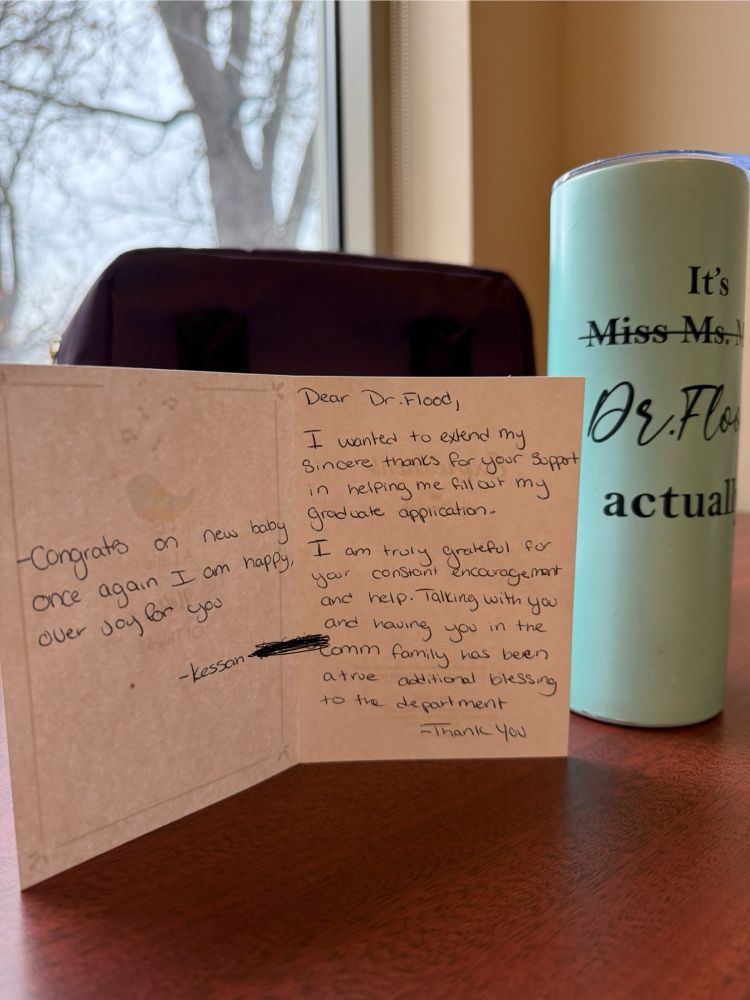 -Congrats on new baby
once again I am happy,
over Joy for you
-Kessan
Dear Dr.Flood,
I wanted to extend my
sincere thanks for your support
in helping me fill out my
graduate application..
I am truly grateful for
your constant encouragement
and help. Talking with you
and having you in the
Comm family has been
a true additional blessing
to the department
-Thank You
It's
Miss Ms.
Dr.Floo
actuall